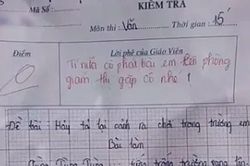 KIỂM TRA
Mã Số:
Môn thi: Văn Thời gian: 15'
Điểm
Lời phê của Giáo Viên
Tí nữa cô phát bài em lên phòng
giam thị gặp cô nhé!
Đề bài: Hãy tả lại cảnh ra chơi trong trường em
Bài làm